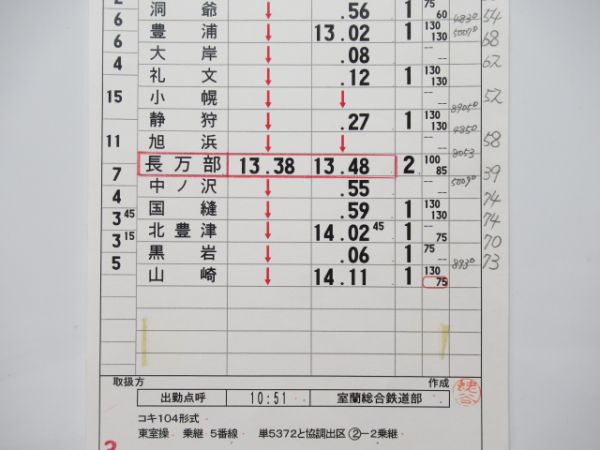 洞爺 ↓ .56 1 75 60
6 4830 54
豊浦 ↓ 13.02 1 130 130
6 5007D 68
大岸 ↓ .08 -- --
4 62
礼文 ↓ .12 1 130 130
15
小幌 ↓ ↓ -- -- 52
静狩 ↓ .27 1 130 130
11
旭浜 ↓ ↓ -- -- 58
長万部 13.38 13.48 2 100 85
7 5009D 39
中ノ沢 ↓ .55 -- --
4 74
国縫 ↓ .59 1 130 130
3 45 74
北豊津 ↓ 14.02 45 1 -- 75
3 15 70
黒岩 ↓ .06 1 75 --
5 73
山崎 ↓ 14.11 1 130 75
取扱方 作成
出勤点呼 10:51 室蘭総合鉄道部
コキ104形式
東室操 乗継 5番線 単5372と協調出区 ②−2乗継
3